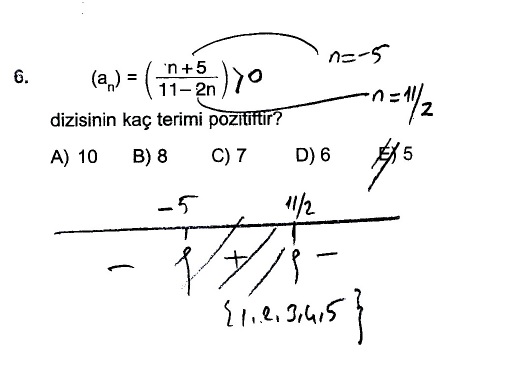 n=-5
6. (aₙ) = (n+5 / 11-2n) >0
n=11/2
dizisinin kaç terimi pozitiftir?
A) 10 B) 8 C) 7 D) 6 E) 5
-5 11/2
- + -
{1,2,3,4,5}